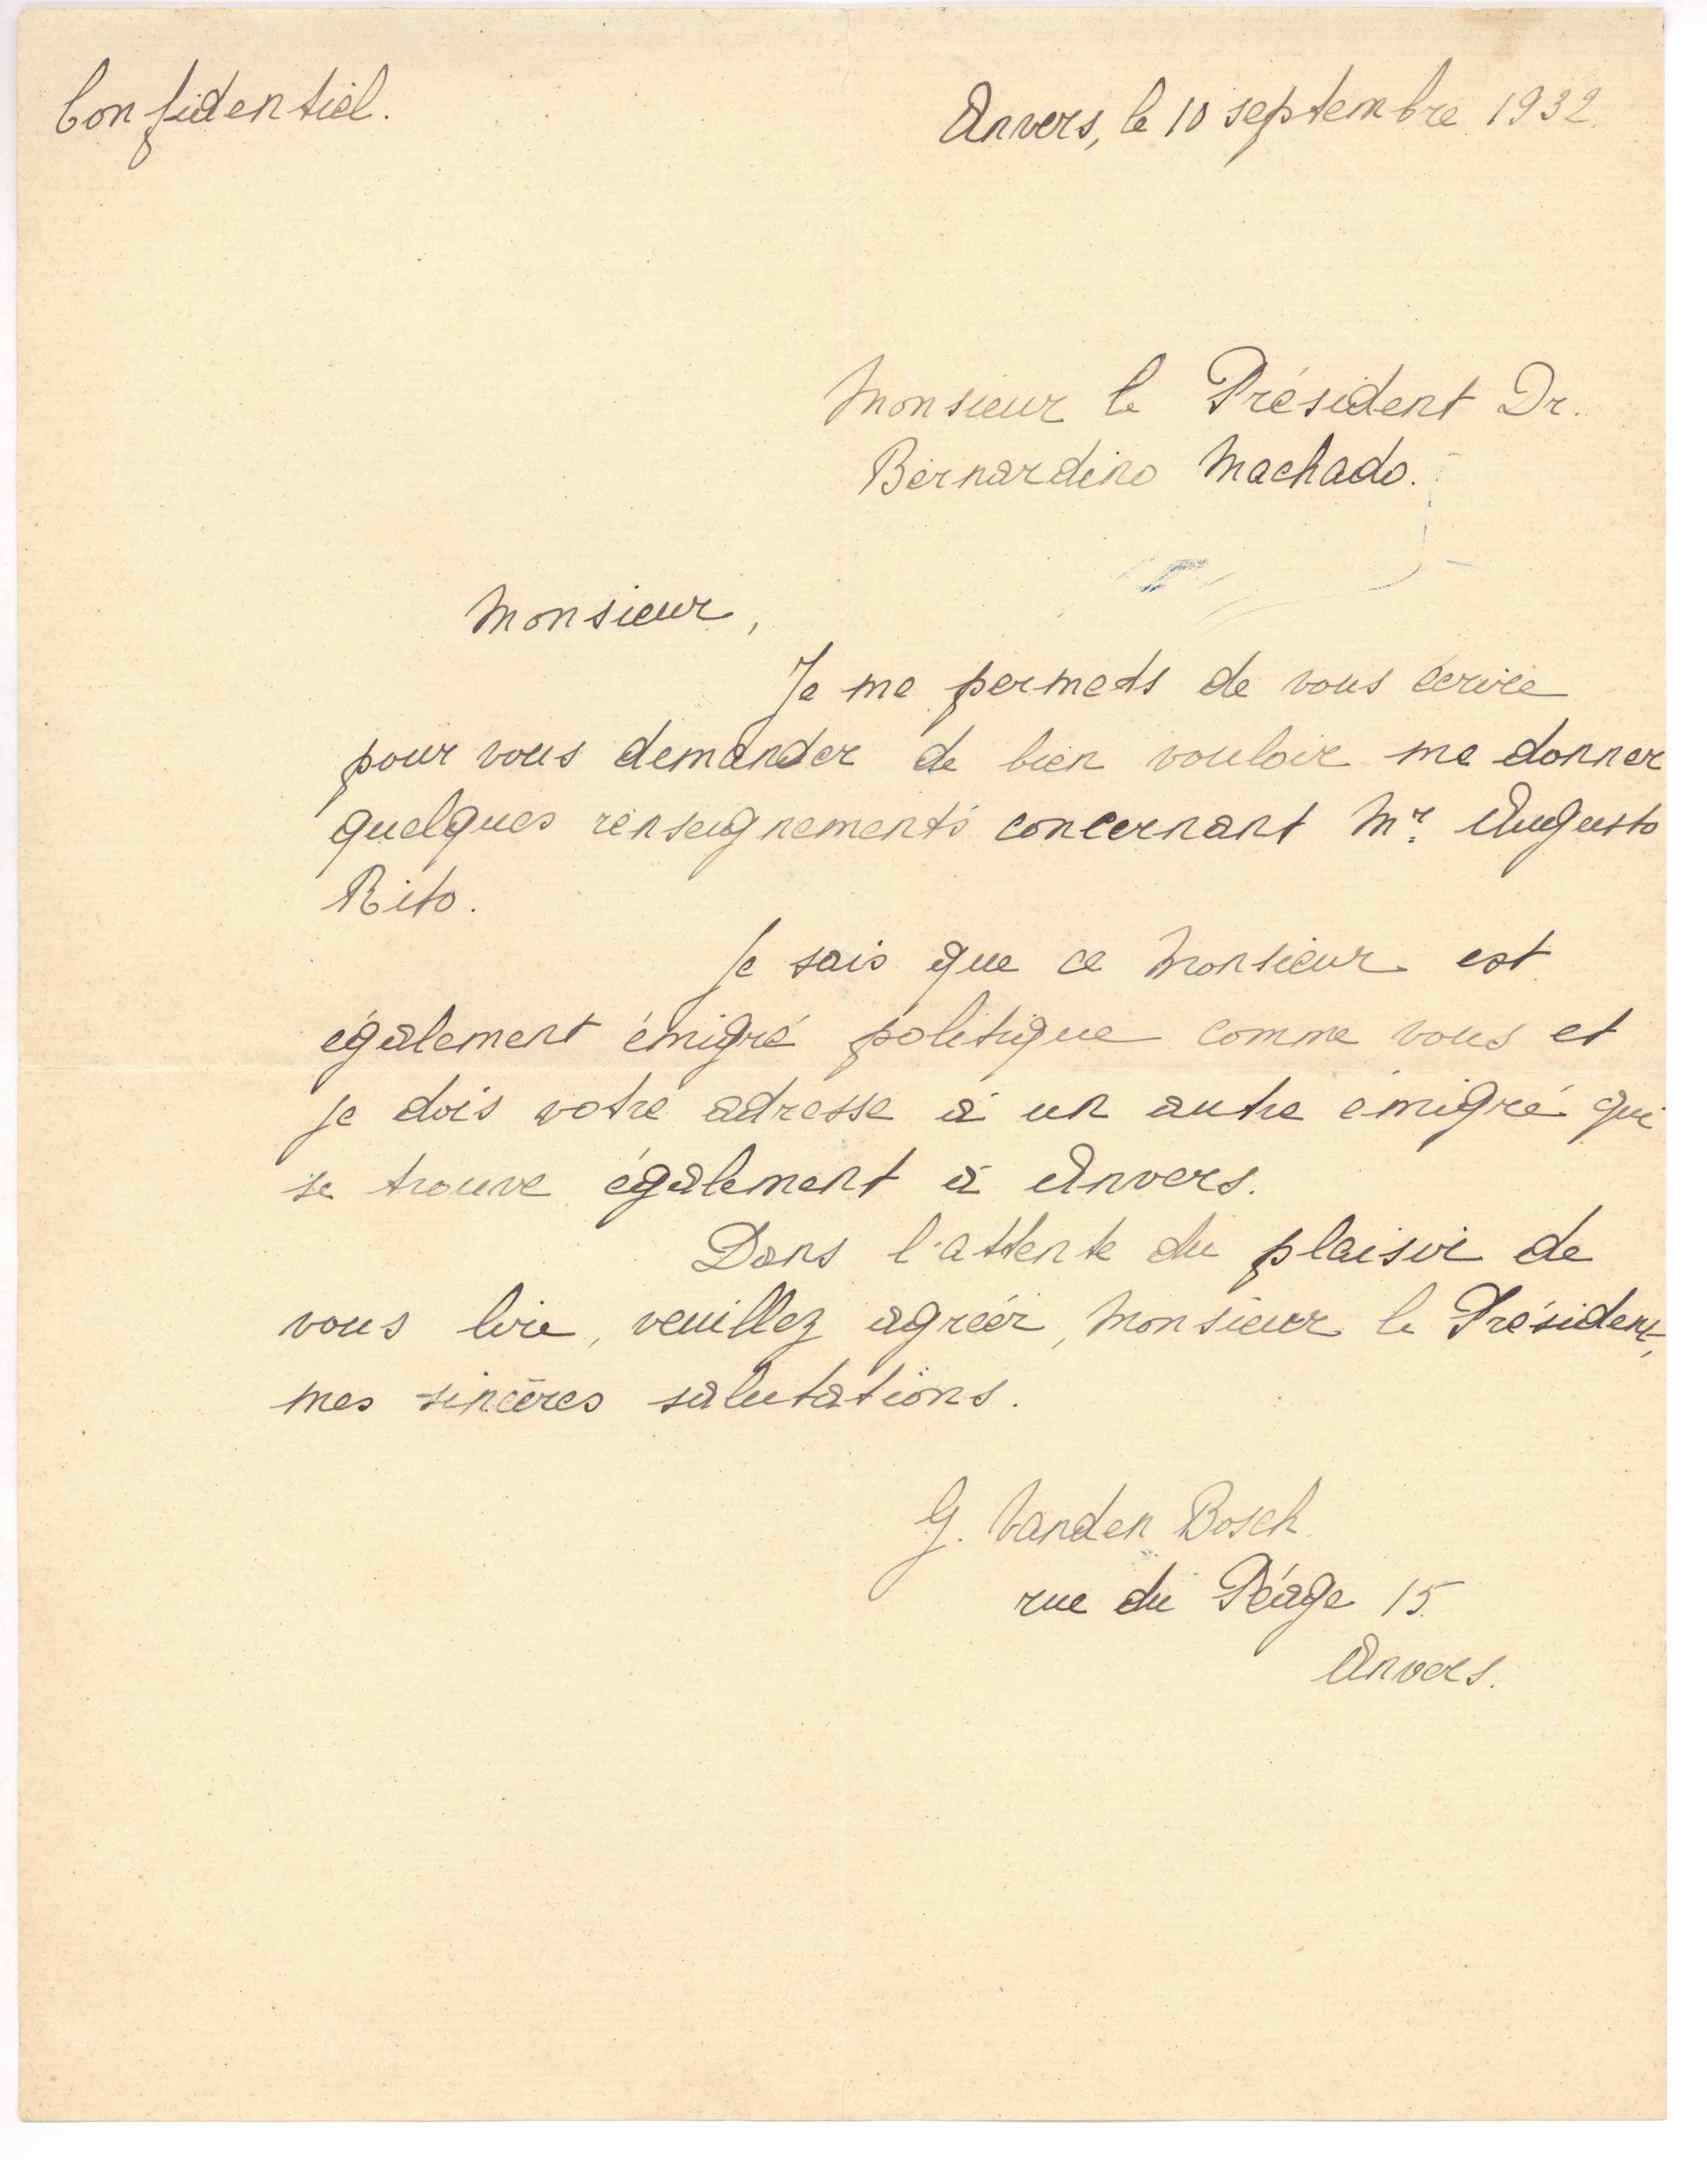 Confidentiel.
Anvers, le 10 septembre 1932.
Monsieur le Président Dr.
Bernardino Machado.
Monsieur,
Je me permets de vous écrire
pour vous demander de bien vouloir me donner
quelques renseignements concernant Mr. Augusto
Rito.
Je sais que ce Monsieur est
également émigré politique comme vous et
je dois votre adresse à un autre émigré qui
se trouve également à Anvers.
Dans l'attente du plaisir de
vous lire, veuillez agréér, Monsieur le Président,
mes sincères salutations.
G. Vanden Bosch
rue du Péage 15.
Anvers.